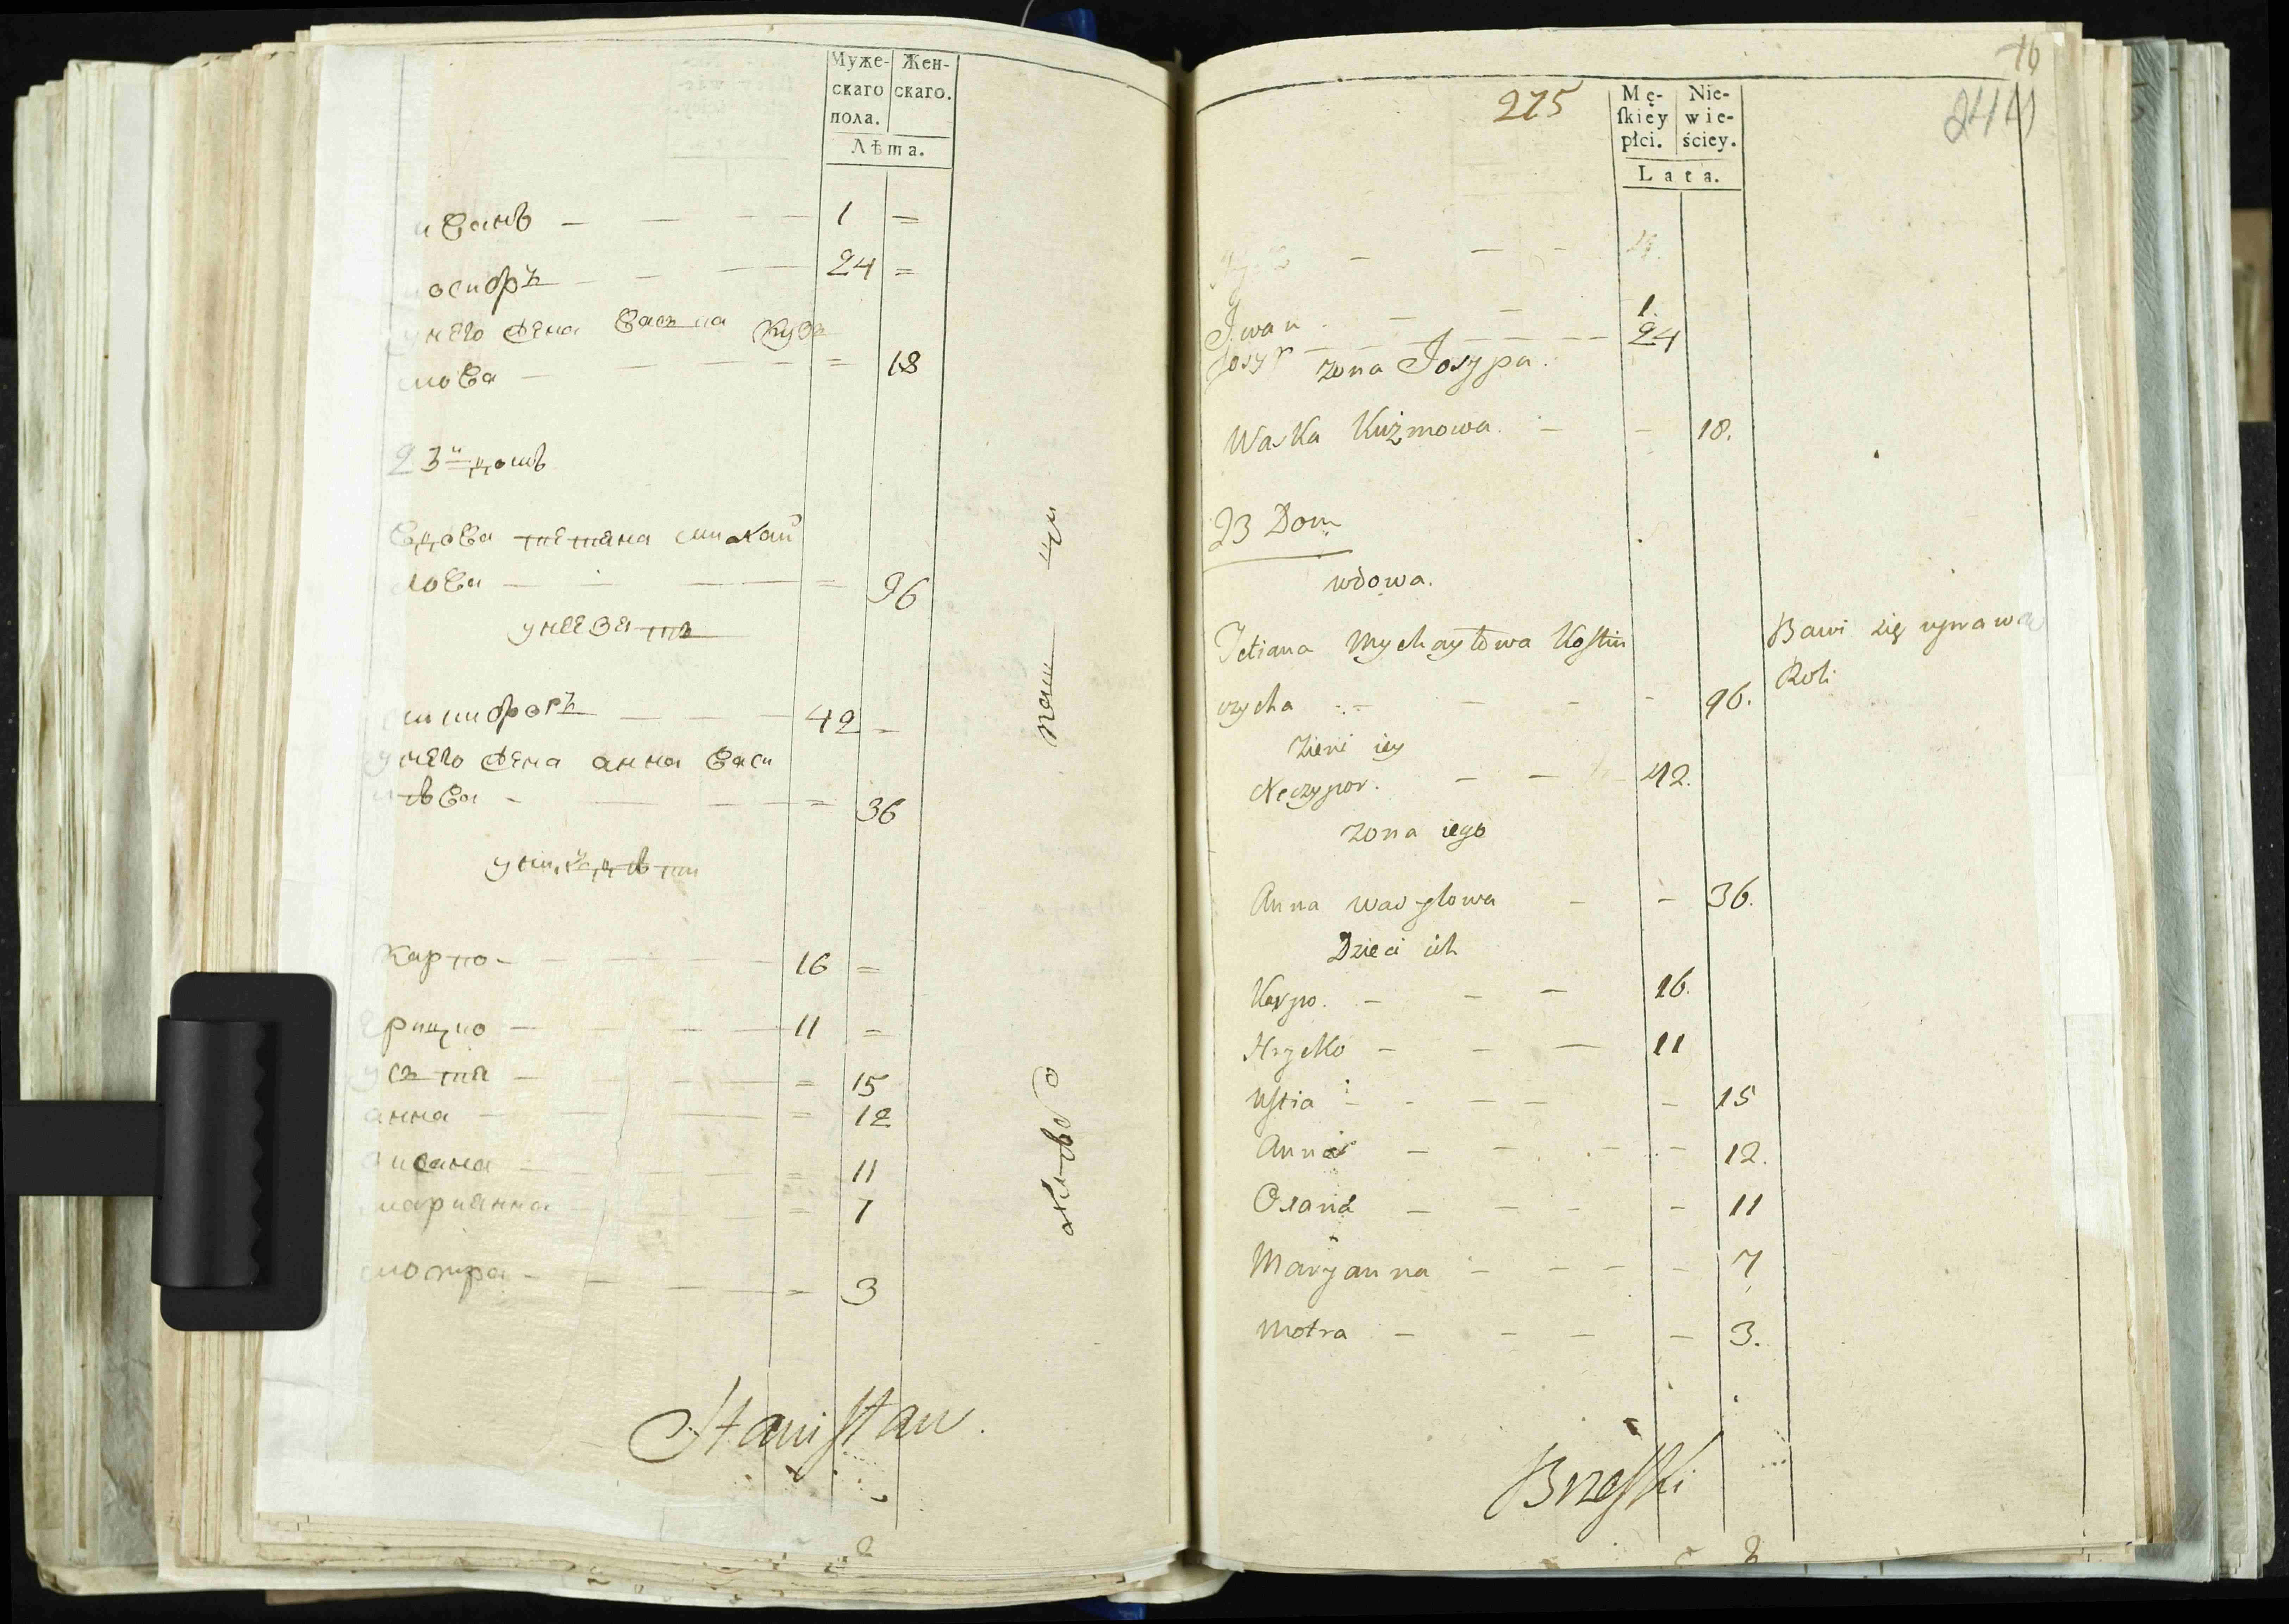 Муже-
скаго
пола.
Жен-
скаго.
Лѣта.
иванъ — — — 1 =
осифъ — — — 24 =
у него жена васка Кузь
мова — — — = 18
23й домъ
вдова тетяна михай
лова — — — = 96
у нее зять
42 =
у него жена анна васи
лѣва — — — = 36
у нихъ дѣти
карпо — — — 16 =
грицко — — — 11 =
устя — — — = 15
анна — — — = 12
оксана — — — = 11
марианна — — — = 7
мотра — — — = 3
Stanisław.
275
76
244
Mę-
ſkiey
płci.
Nie-
wie-
ściey.
Lata.
Iwan — — — 1.
Josyp — — — 24
żona Josypa.
Waska Kuźmowa — — 18.
23 Dom
wdowa.
Tetiana Mychayłowa Kostiu
czycha — — — 96.
Bawi się uprawą
Roli
Zięć iey
Neczypor. — — 42.
żona iego
Anna Wasylowa — — 36.
Dzieci ich
Karpo. — — — 16.
Hrycko — — — 11
Ustia — — — 15
Anna — — — 12.
Oxana — — — 11
Maryanna — — — 7
Motra — — — 3.
Brzeski